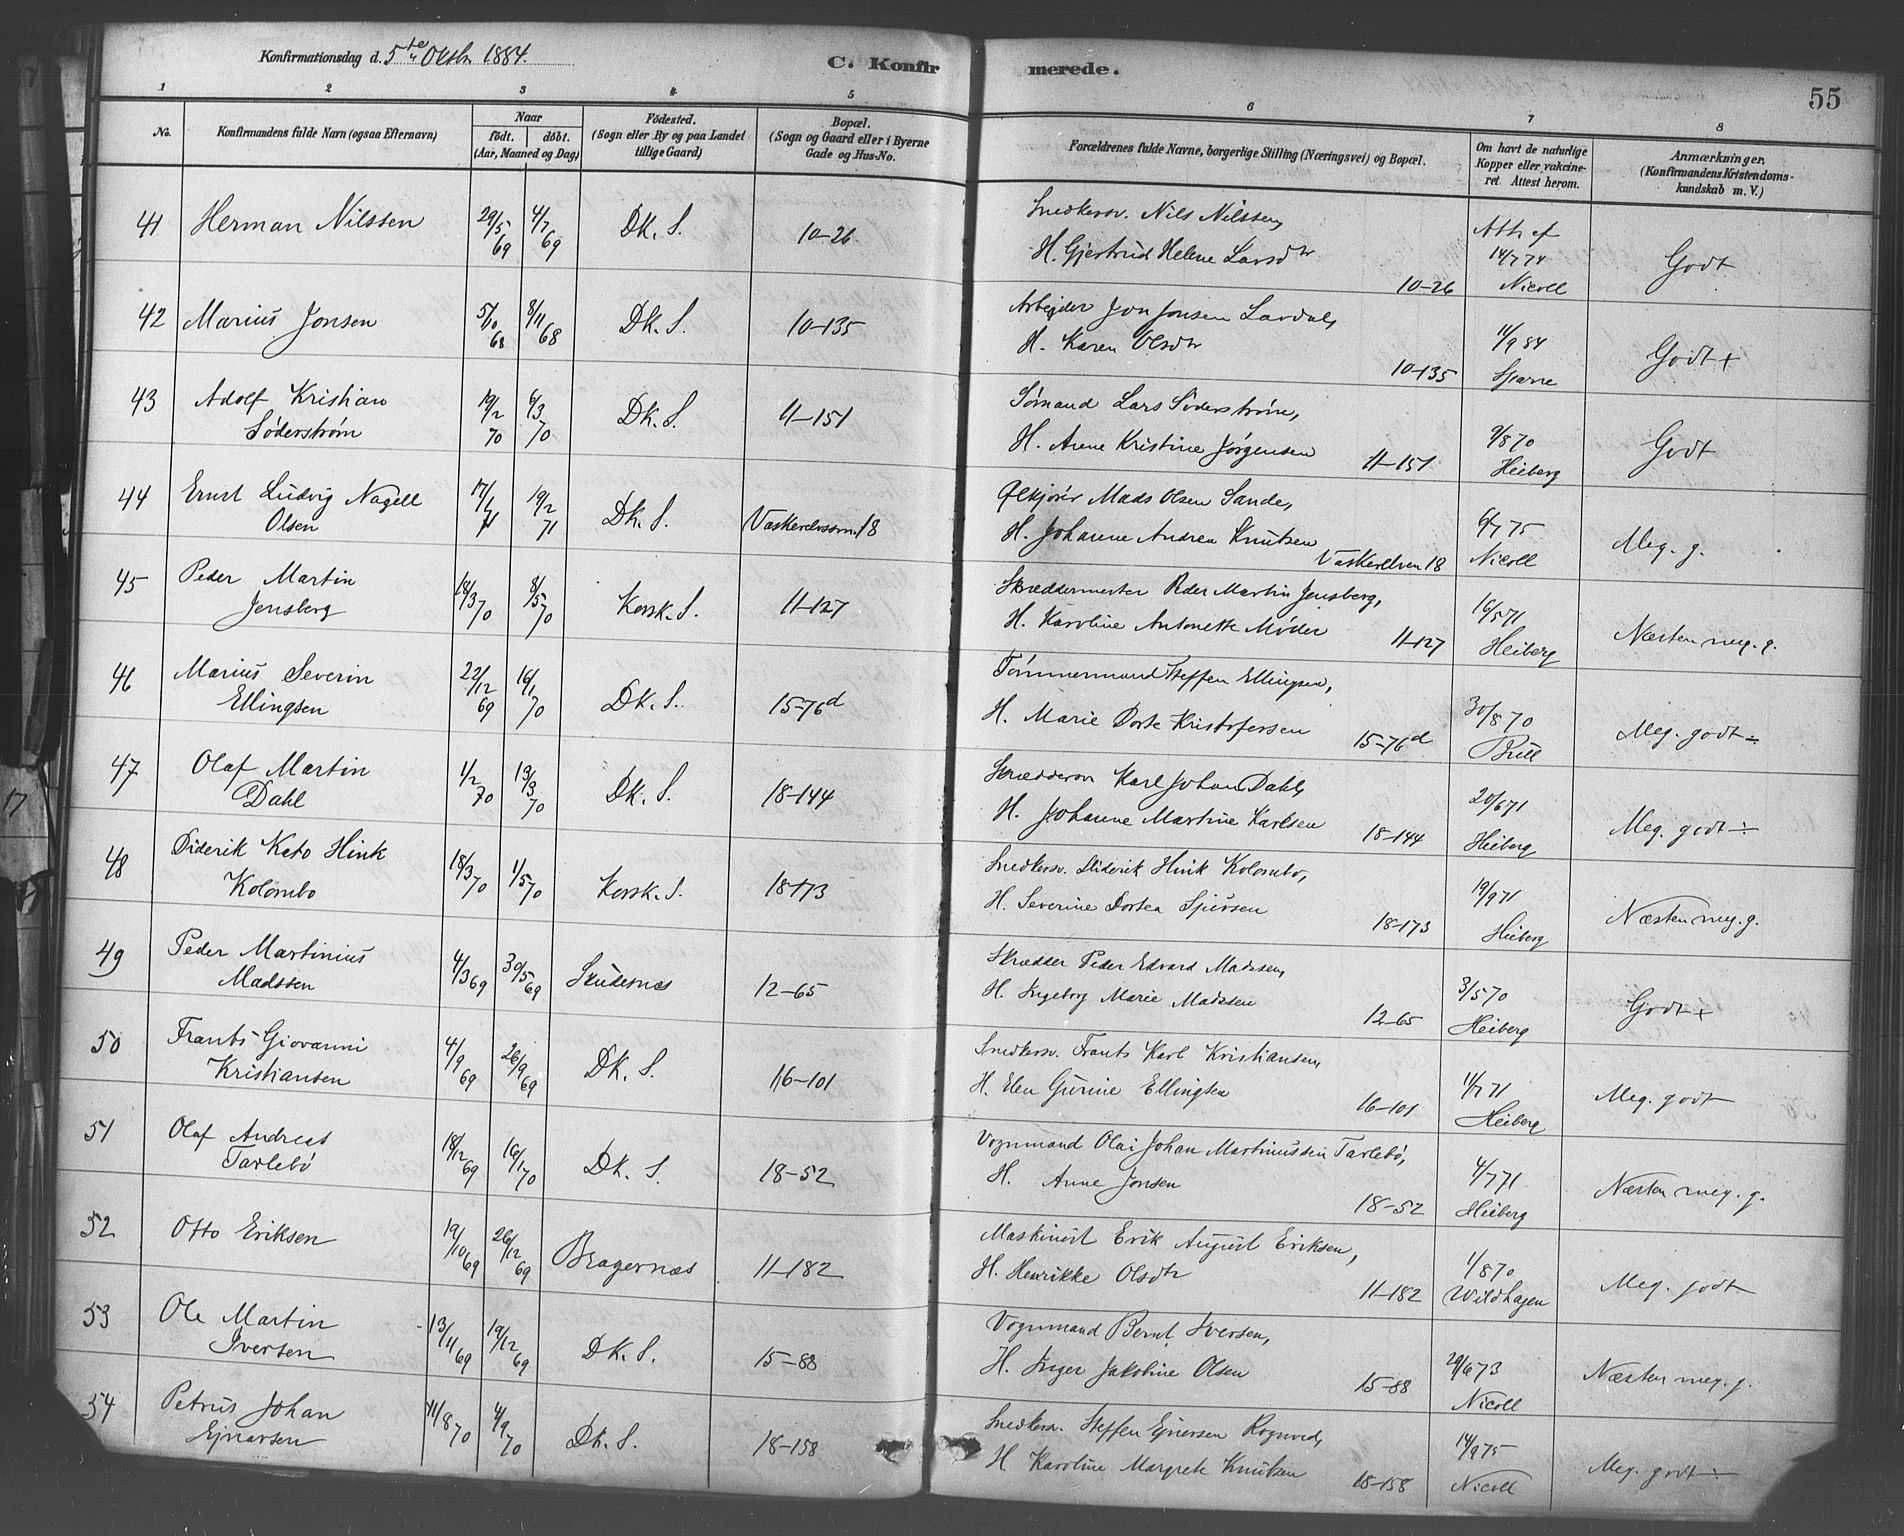 Konfirmationsdag d. 5te Oktb. 1884.
C. Konfirmerede.
55
1 2 3 4 5 6 7 8
No. Konfirmandens fulde Navn (ogsaa Efternavn) Naar födt. döbt. (Aar, Maaned og Dag) Födested. (Sogn eller By og paa Landet tillige Gaard) Bopæl. (Sogn og Gaard eller i Byerne Gade og Hus-No. Forældrenes fulde Navne, borgerlige Stilling (Næringsvei) og Bopæl. Om havt de naturlige Kopper eller vakcineret. Attest herom. Anmærkninger. (Konfirmandens Kristendomskundskab m. V.)
41 Herman Nilssen 29/5 69 4/7 69 Dk. S. 10-26 Snedkersv. Nils Nilssen, Att. af 14/7 74
H. Gjertrud Helene Larsdtr 10-26 Nicoll Godt
42 Marius Jonsen 5/10 68 8/11 68 Dk. S. 10-135 Arbejder Jon Jonsen Lavdal,
H. Karen Olsdtr 10-135 11/9 84 Sparre Godt +
43 Adolf Kristian 19/2 70 6/3 70 Dk. S. 11-151 Sømand Lars Söderstrøm,
Söderstrøm H. Anne Kristine Jørgensen 11-151 9/8 70 Heiberg Godt
44 Ernst Ludvig Nagell 17/1 71 19/2 71 Dk. S. 18 Ølkjører Mads Olsen Sande,
Olsen H. Johanne Andrea Knutsen Vaskerelven 18 6/7 75 Nicoll Meg. g.
45 Peder Martin 18/3 70 8/5 70 Korsk. S. 11-127 Skræddermester Peder Martin Jensberg,
Jensberg H. Karoline Antonette Møder 11-127 16/5 71 Heiberg Næsten meg. g.
46 Marius Severin 22/12 69 16/1 70 Dk. S. 15-76d Tømmermand Steffen Ellingsen,
Ellingsen H. Marie Dorte Kristofersen 15-76d 30/8 70 Bull Meg. godt ÷
47 Olaf Martin 1/2 70 13/3 70 Dk. S. 18-144 Skræddersv Karl Johan Dahl,
Dahl H. Johanne Martine Karlsen 18-144 20/6 71 Heiberg Meg. godt ÷
48 Diderik Kato Hink 18/3 70 1/5 70 Korsk. S. 18-173 Snedkersv. Diderik Hink Kolombo,
Kolombo H. Severine Dortea Sjursen 18-173 19/9 71 Heiberg Næsten meg. g.
49 Peder Martinius 4/3 69 30/5 69 Skudesnæs 12-65 Skrædder Peder Edvard Madssen,
Madssen H. Ingeborg Marie Madssen 12-65 3/5 70 Heiberg Godt +
50 Frants Giovanni 4/9 69 26/9 69 Dk. S. 16-101 Snedkersv. Frants Karl Kristiansen,
Kristiansen H. Elen Gurine Ellingsen 16-101 11/7 71 Heiberg Meg. godt
51 Olaf Andreas 18/12 69 16/1 70 Dk. S. 18-52 Vognmand Olai Johan Martinussen Tarlebø,
Tarlebø H. Anne Jonsen 18-52 4/7 71 Heiberg Næsten meg. g.
52 Otto Eriksen 19/10 69 26/12 69 Bragernæs 11-182 Maskinist Erik August Eriksen,
H. Henrikke Olsdtr 11-182 1/8 70 Wildhagen Meg. godt
53 Ole Martin 13/11 69 19/12 69 Dk. S. 15-88 Vognmand Bernt Iversen,
Iversen H. Inger Jakobine Olsen 15-88 29/6 73 Nicoll Næsten meg. g.
54 Petrus Johan 11/8 70 4/9 70 Dk. S. 18-158 Snedkersv. Steffen Ejnersen Rognved,
Ejnarsen H Karoline Margrete Knutsen 18-158 14/9 75 Nicoll Meg. godt ÷
17